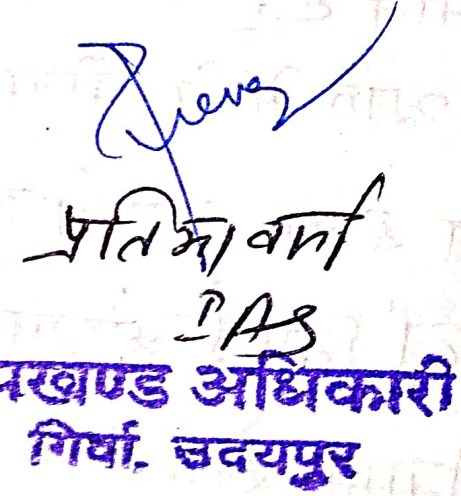 प्रतिभा वर्मा
IAS
पखण्ड अधिकारी
गिर्वा, उदयपुर